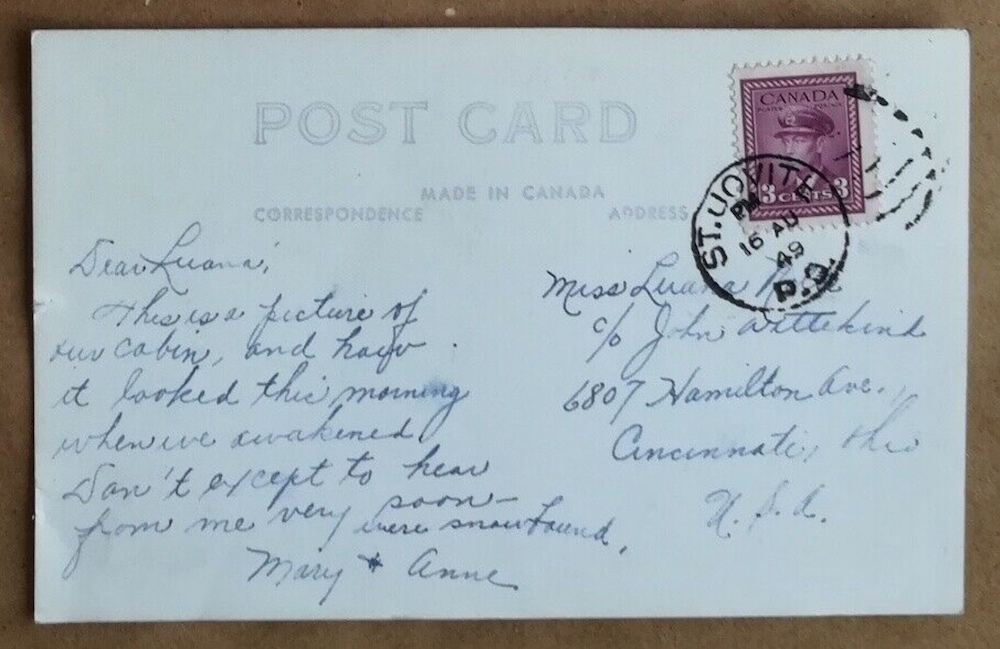 POST CARD
MADE IN CANADA
CORRESPONDENCE
ADDRESS
CANADA
POSTES POSTAGE
3 CENTS 3
ST. JOVITE
PM
16 AU
49
P.Q.
Dear Luana,
This is a picture of
our cabin, and how
it looked this morning
when we awakened
Don't except to hear
from me very soon—
were snowbound.
Mary & Anne
Miss Luana
c/o John Wittekind
6807 Hamilton Ave.,
Cincinnati, Ohio
U.S.A.